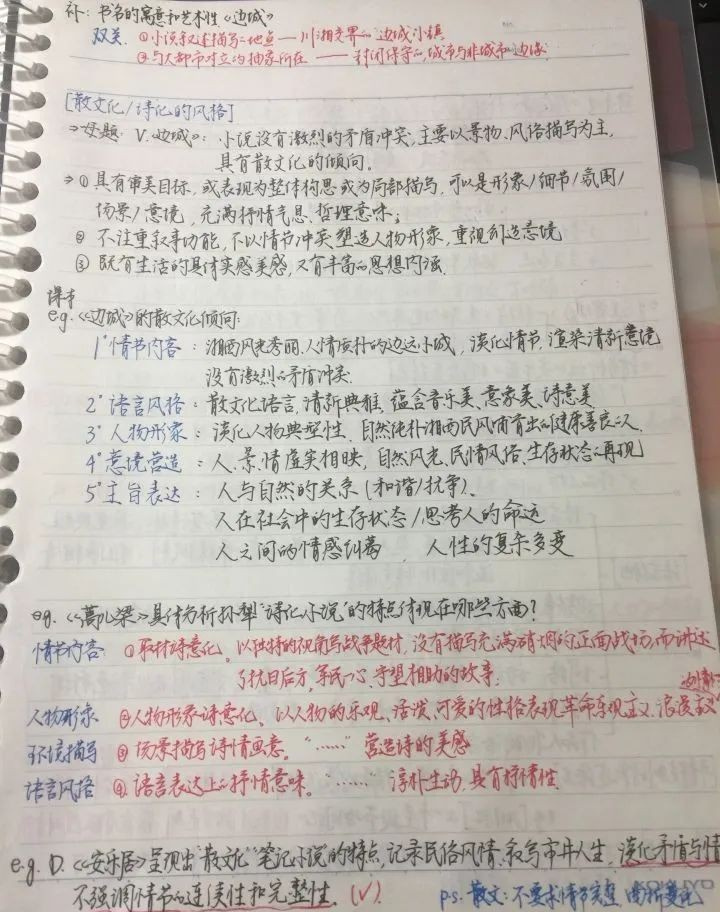 补：书名的寓意和艺术性《边城》
双关. ①小说叙述描写之地点——川湘交界的边城小镇
②与大都市对立的抽象所在——封闭保守的城市与非城市的边缘
[散文化/诗化的风格]
→母题 V.《边城》：小说没有激烈的矛盾冲突,主要以景物、风俗描写为主,
具有散文化的倾向。
→①具有审美目标,或表现为整体构思或为局部描写,可以是形象/细节/氛围/
场景/意境,充满抒情气息、哲理意味；
② 不注重叙事功能,不以情节冲突塑造人物形象,重视创造意境
③ 既有生活的具体实感美感,又有丰富的思想内涵.
课本
e.g.《边城》的散文化倾向:
1°情节内容：湘西风光秀丽.人情质朴的边远小城,淡化情节,渲染清新意境
没有激烈的矛盾冲突.
2°语言风格：散文化语言,清新典雅,蕴含音乐美、意象美、诗意美
3°人物形象：淡化人物典型性.自然纯朴湘西民风哺育出的健康善良之人.
4°意境营造：人、景、情虚实相映,自然风光、民情风俗、生存状态的再现
5°主旨表达：人与自然的关系(和谐/抗争).
人在社会中的生存状态/思考人的命运
人之间的情感纠葛 , 人性的复杂多变
eg.《荷儿梁》具体分析孙犁"诗化小说"的特点体现在哪些方面?
情节内容 ①取材诗意化.以独特的视角写战争题材,没有描写充满硝烟的正面战场,而讲述
了抗日后方,军民一心、守望相助的故事.
人物形象 ②人物形象诗意化、以人物的乐观、活泼、可爱的性格表现革命乐观主义、浪漫主义
环境描写 ③ 场景描写诗情画意。"……" 营造诗的美感
语言风格 ④.语言表达上的抒情意味。"……" 淳朴生动,具有抒情性.
e.g. D.《安乐居》呈现出"散文化"笔记小说"的特点,记录民俗风情,叙写市井人生,淡化矛盾与情
不强调情节的连续性和完整性. (√) ps.散文：不要求情节完整